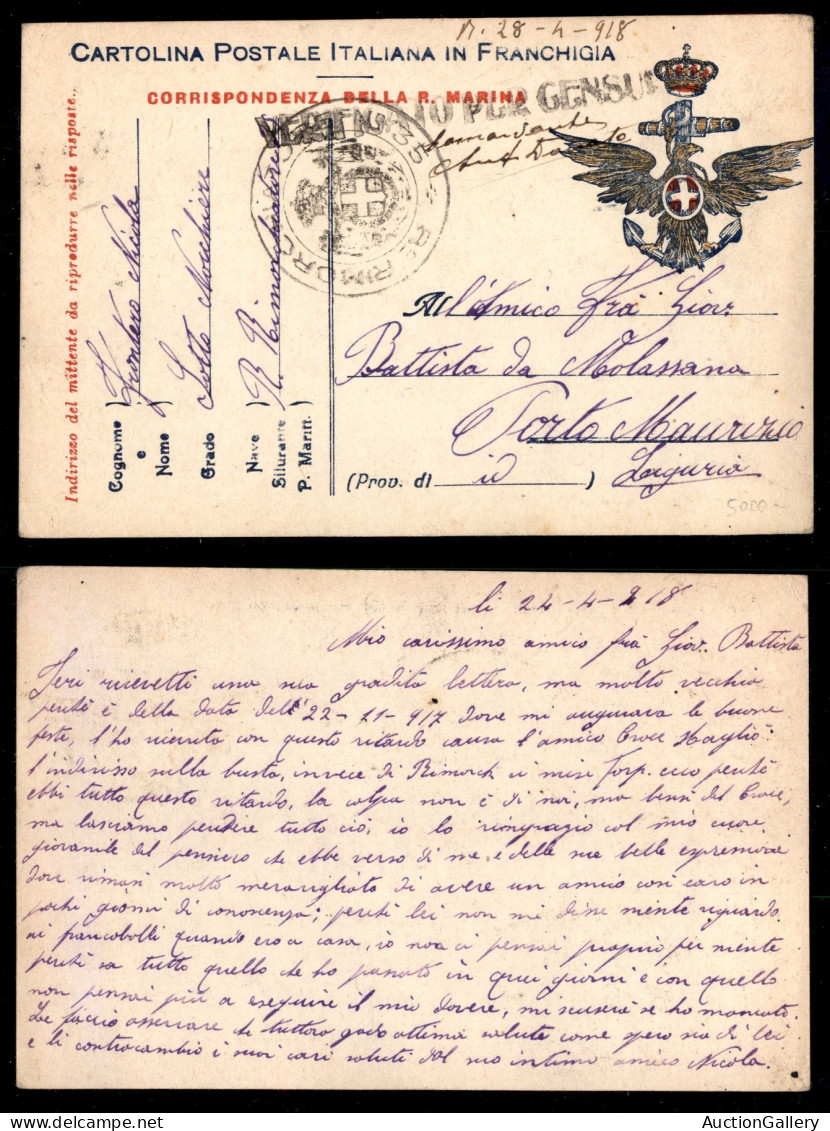 R. 28-4-918
CARTOLINA POSTALE ITALIANA IN FRANCHIGIA
CORRISPONDENZA DELLA R. MARINA
VERIFICATO PER CENSU
Comandante
R. RIMORC
35
Indirizzo del mittente da riprodurre nelle risposte..
Cognome
e
Nome
) Nicola
Grado
) Sotto Nocchiere
Nave
Silurante
P. Marin.
) R. Rimorchiatore
All'Amico Frà Giov.
Battista da Molassana
Porto Maurizio
(Prov. di io ) Liguria
5000-
li 24-4-918
Mio carissimo amico frà Giov. Battista
Ieri ricevetti una sua gradita lettera, ma molto vecchia
perchè è della data dell'22-11-917 dove mi augurava le buone
feste, l'ho ricevuta con questo ritardo causa l'amico Croce sbagliò
l'indirisso sulla busta, invece di Rimorch ci mise Torp. ecco perchè
ebbi tutto questo ritardo, la colpa non è di noi, ma bensì del Croce,
ma lasciamo perdire tutto ciò, io lo ringragio col mio cuore
giovanile del pensiero che ebbe verso di me, e delle sue belle espressioni
dove rimasi molto meravigliato di avere un amico così caro in
pochi giorni di conoscenza; perchè lei non mi disse niente riguardo
ai francobolli quando ero a casa, io non ci pensai proprio per niente
perchè sa tutto quello che ho passato in quei giorni e con quello
non pensai più a eseguire il mio dovere, mi scuserà se ho mancato.
Le faccio osservare che tuttora godo ottima salute come spero sia di lei
e li contracambio i suoi cari saluti dal suo intimo amico Nicola.
AuctionGallery